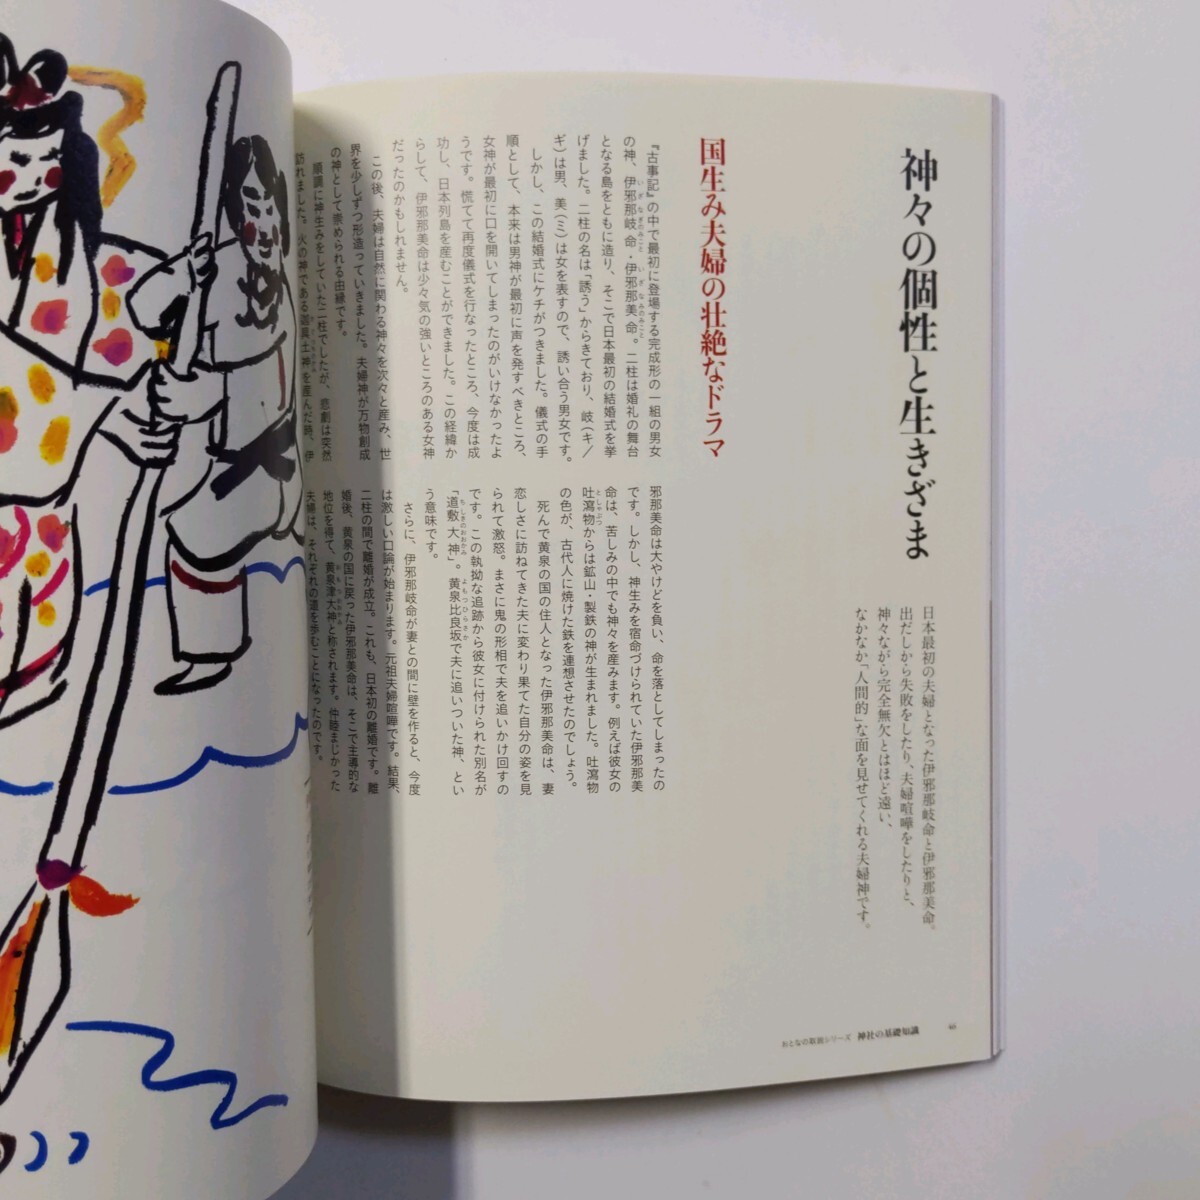 神々の個性と生きざま
日本最初の夫婦となった伊邪那岐命と伊邪那美命。
出だしから失敗をしたり、夫婦喧嘩をしたりと、
神々ながら完全無欠とはほど遠い、
なかなか「人間的」な面を見せてくれる夫婦神です。
国生み夫婦の壮絶なドラマ
『古事記』の中で最初に登場する完成形の一組の男女
の神、伊邪那岐命・伊邪那美命。二柱は婚礼の舞台
いざなぎのみこと いざなみのみこと
となる島をともに造り、そこで日本最初の結婚式を挙
げました。二柱の名は「誘う」からきており、岐(キ/
ギ)は男、美(ミ)は女を表すので、誘い合う男女です。
しかし、この結婚式にケチがつきました。儀式の手
順として、本来は男神が最初に声を発すべきところ、
女神が最初に口を開いてしまったのがいけなかったよ
うです。慌てて再度儀式を行なったところ、今度は成
功し、日本列島を産むことができました。この経緯か
らして、伊邪那美命は少々気の強いところのある女神
だったのかもしれません。
この後、夫婦は自然に関わる神々を次々と産み、世
界を少しずつ形造っていきました。夫婦神が万物創成
の神として崇められる由縁です。
順調に神生みをしていた二柱でしたが、悲劇は突然
訪れました。火の神である迦具土神を産んだ時、伊
邪那美命は大やけどを負い、命を落としてしまったの
です。しかし、神生みを宿命づけられていた伊邪那美
命は、苦しみの中でも神々を産みます。例えば彼女の
吐瀉物からは鉱山・製鉄の神が生まれました。吐瀉物
としゃぶつ
の色が、古代人に焼けた鉄を連想させたのでしょう。
死んで黄泉の国の住人となった伊邪那美命は、妻
恋しさに訪ねてきた夫に変わり果てた自分の姿を見
られて激怒。まさに鬼の形相で夫を追いかけ回すの
です。この執拗な追跡から彼女に付けられた別名が
「道敷大神」。黄泉比良坂で夫に追いついた神、とい
ちしきのおおかみ よもつひらさか
う意味です。
さらに、伊邪那岐命が妻との間に壁を作ると、今度
は激しい口論が始まります。元祖夫婦喧嘩です。結果、
二柱の間で離婚が成立。これも、日本初の離婚です。離
婚後、黄泉の国に戻った伊邪那美命は、そこで主導的な
地位を得て、黄泉津大神と称されます。仲睦まじかった
夫婦は、それぞれの道を歩むことになったのです。
おとなの取説シリーズ 神社の基礎知識